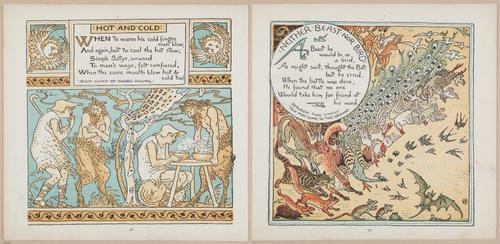 HOT·AND·COLD·
WHEN To warm his cold fingers
man blew,
And again, but to cool the hot stew;
Simple Satyr, unused
To man's ways, felt confused,
When the same mouth blew hot &
cold too!
NEITHER BEAST NOR BIRD
A Beast he
would be, or
a bird,
As might suit, thought the Bat:
but he erred.
When the battle was done,
He found that no one
Would take him for friend at
his word.
BETWEEN TWO STOOLS
YOU MAY COME TO THE GROUND